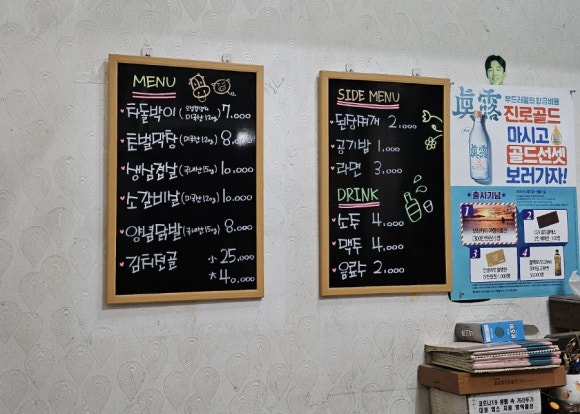 MENU
차돌박이 (미국산 120g) 7,000
토벌막창 (미국산 120g) 8,000
생삼겹살 (국내산 150g) 10,000
소갈비살 (미국산 120g) 10,000
양념닭발 (국내산 150g) 8,000
김치전골 小 25,000
大 40,000
SIDE MENU
된장찌개 2,000
공기밥 1,000
라면 3,000
DRINK
소주 4,000
맥주 4,000
음료수 2,000
眞露
부드러움의 황금비율
진로골드
마시고
골드선셋
보러가자!
출시기념
1
2
3
4
코로나19 생활 속 거리두기